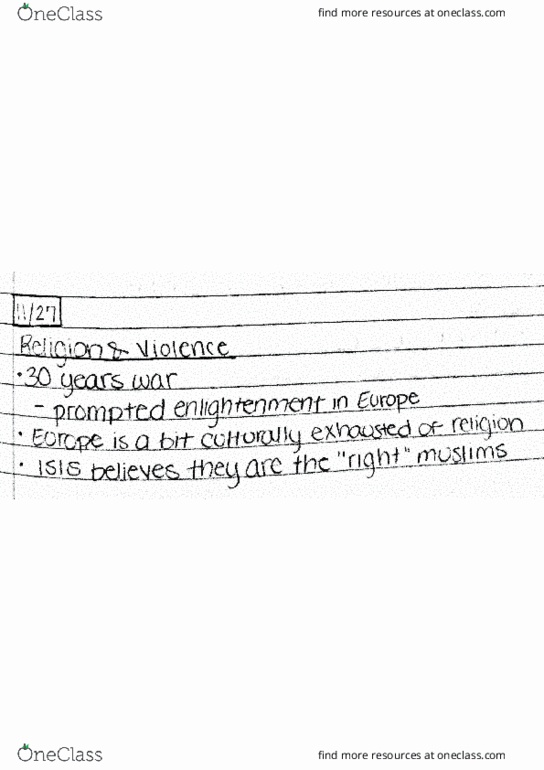 OneClass
find more resources at oneclass.com
11/27
Religion & Violence
• 30 years war
- prompted enlightenment in Europe
• Europe is a bit culturally exhausted of religion
• ISIS believes they are the "right" muslims
OneClass
find more resources at oneclass.com